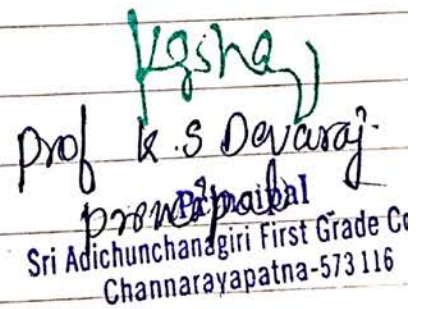 Prof K.S Devaraj.
Principal
Principal
Sri Adichunchanagiri First Grade Co
Channarayapatna-573 116